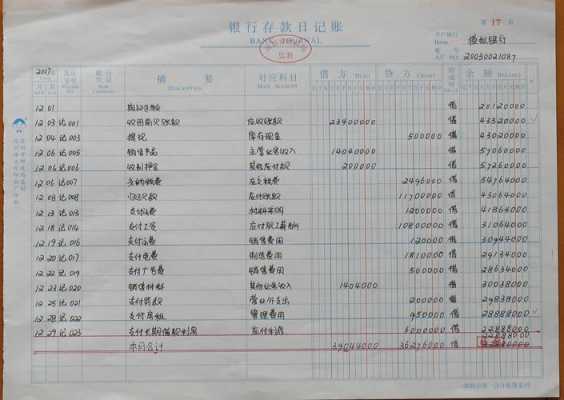 银行存款日记账
BANK JOURNAL
第 17 页
开户银行 Name 徽税银行
账号 A/C No. 20030021087
2017年 凭证 摘要 Description 对应科目 借方 (Dr.) 贷方 (Cr.) 余额
12 01 期初余额 借 20120000
12 03 记001 收回前欠账款 应收账款 23400000 借 43520000
12 04 记003 提现 库存现金 500000 借 43020000
12 06 记005 销售商品 主营业务收入 14040000 借 57060000
12 06 记006 收到押金 其他应付款 200000 借 57260000
12 06 记007 交纳税费 应交税费 2496000 借 54764000
12 08 记008 归还欠款 应付账款 11700000 借 43064000
12 13 记013 支付运费 材料采购 1200000 借 41864000
12 18 记014 支付工资 应付职工薪酬 10800000 借 31064000
12 19 记016 支付运费 销售费用 120000 借 30944000
12 20 记017 支付电费 制造费用 1810000 借 29134000
12 22 记019 支付广告费 销售费用 500000 借 28634000
12 23 记020 销售材料 其他业务收入 1404000 借 30038000
12 25 记021 支付货款 营业外支出 200000 借 29838000
12 28 记022 支付房租 管理费用 950000 借 28888000
12 29 记023 支付长期借款利息 应付利息 6000000 借 22888000
本月合计 39044000 36276000 借 22888000